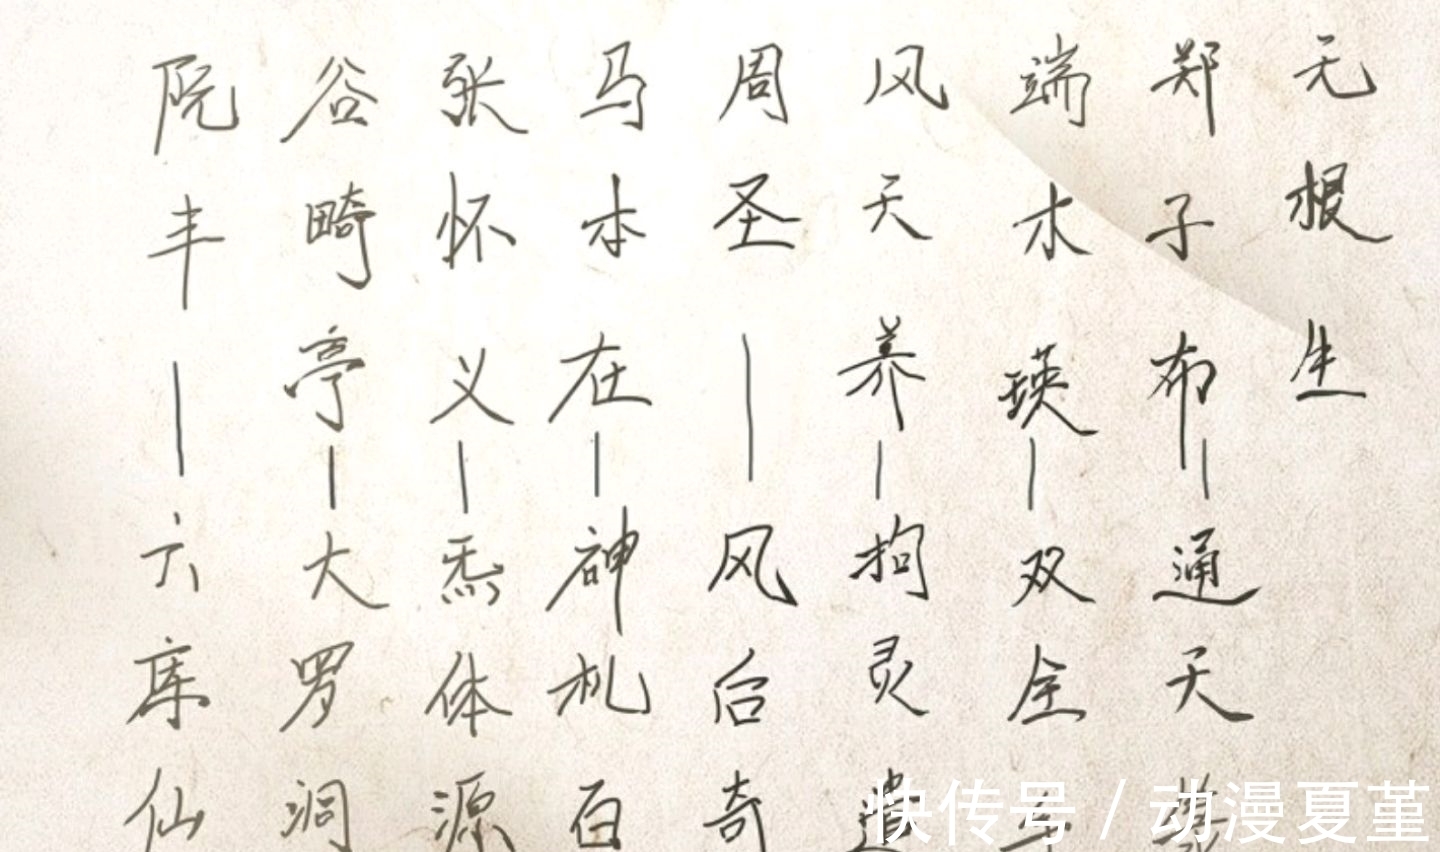 无根生
郑子布—通天
端木瑛—双全
风天养—拘灵遣
周圣—风后奇
马本在—神机百
张怀义—炁体源
谷畸亭—大罗洞
阮丰—六库仙
快传号 / 动漫夏堇